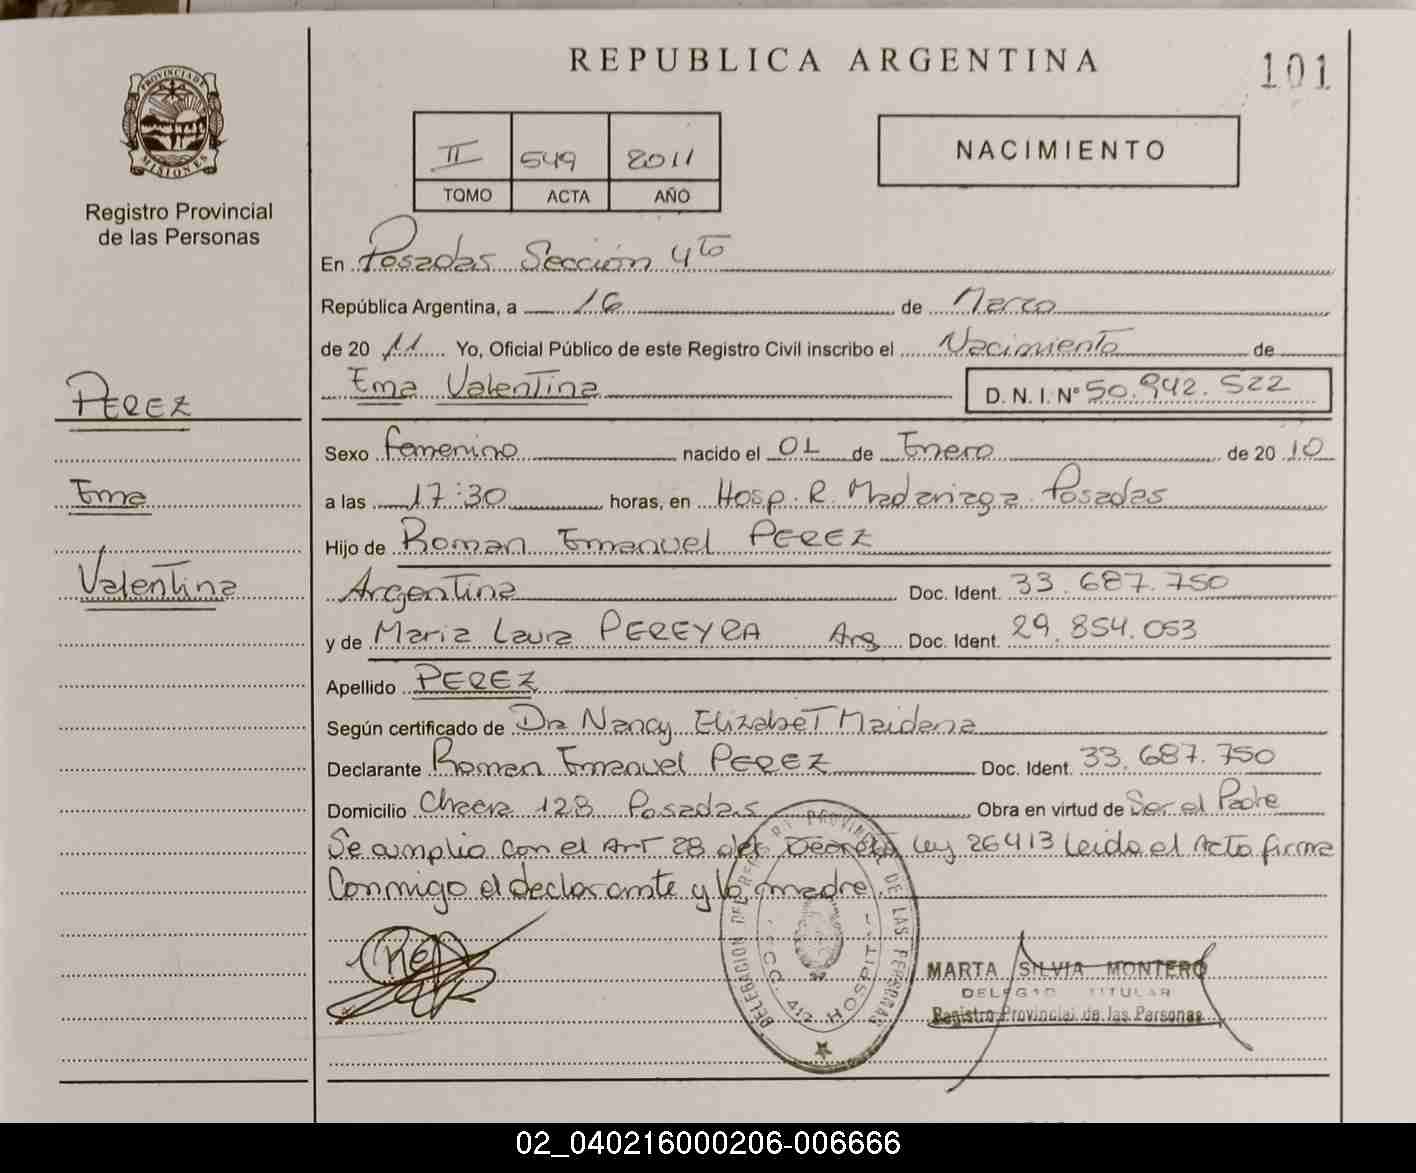 REPUBLICA ARGENTINA
101
PROVINCIA DE
MISIONES
Registro Provincial
de las Personas
II 549 2011
TOMO ACTA AÑO
NACIMIENTO
En Posadas Sección 4to
República Argentina, a 16 de Marzo
de 20 11 Yo, Oficial Público de este Registro Civil inscribo el Nacimiento de
Ema Valentina D. N. I. Nº 50.942.522
PEREZ
Ema
Valentina
Sexo femenino nacido el 01 de Enero de 20 10
a las 17:30 horas, en Hosp. R. Madariaga Posadas
Hijo de Roman Emanuel PEREZ
Argentina Doc. Ident. 33.687.750
y de Maria Laura PEREYRA Arg Doc. Ident. 29.854.053
Apellido PEREZ
Según certificado de Dra Nancy Elizabet Maidana
Declarante Roman Emanuel PEREZ Doc. Ident. 33.687.750
Domicilio 128 Posadas Obra en virtud de Ser el Padre
Se cumplio con el Art 28 del Decreto Ley 26413 Leida el Acta firma
Conmigo el declarante y la madre.
DELEGACION DEL REGIST. PROVINCIAL DE LAS PERSONAS
SECC. 4ta HOSPITAL
MARTA SILVIA MONTERO
DELEGAD TITULAR
Registro Provincial de las Personas
02_040216000206-006666